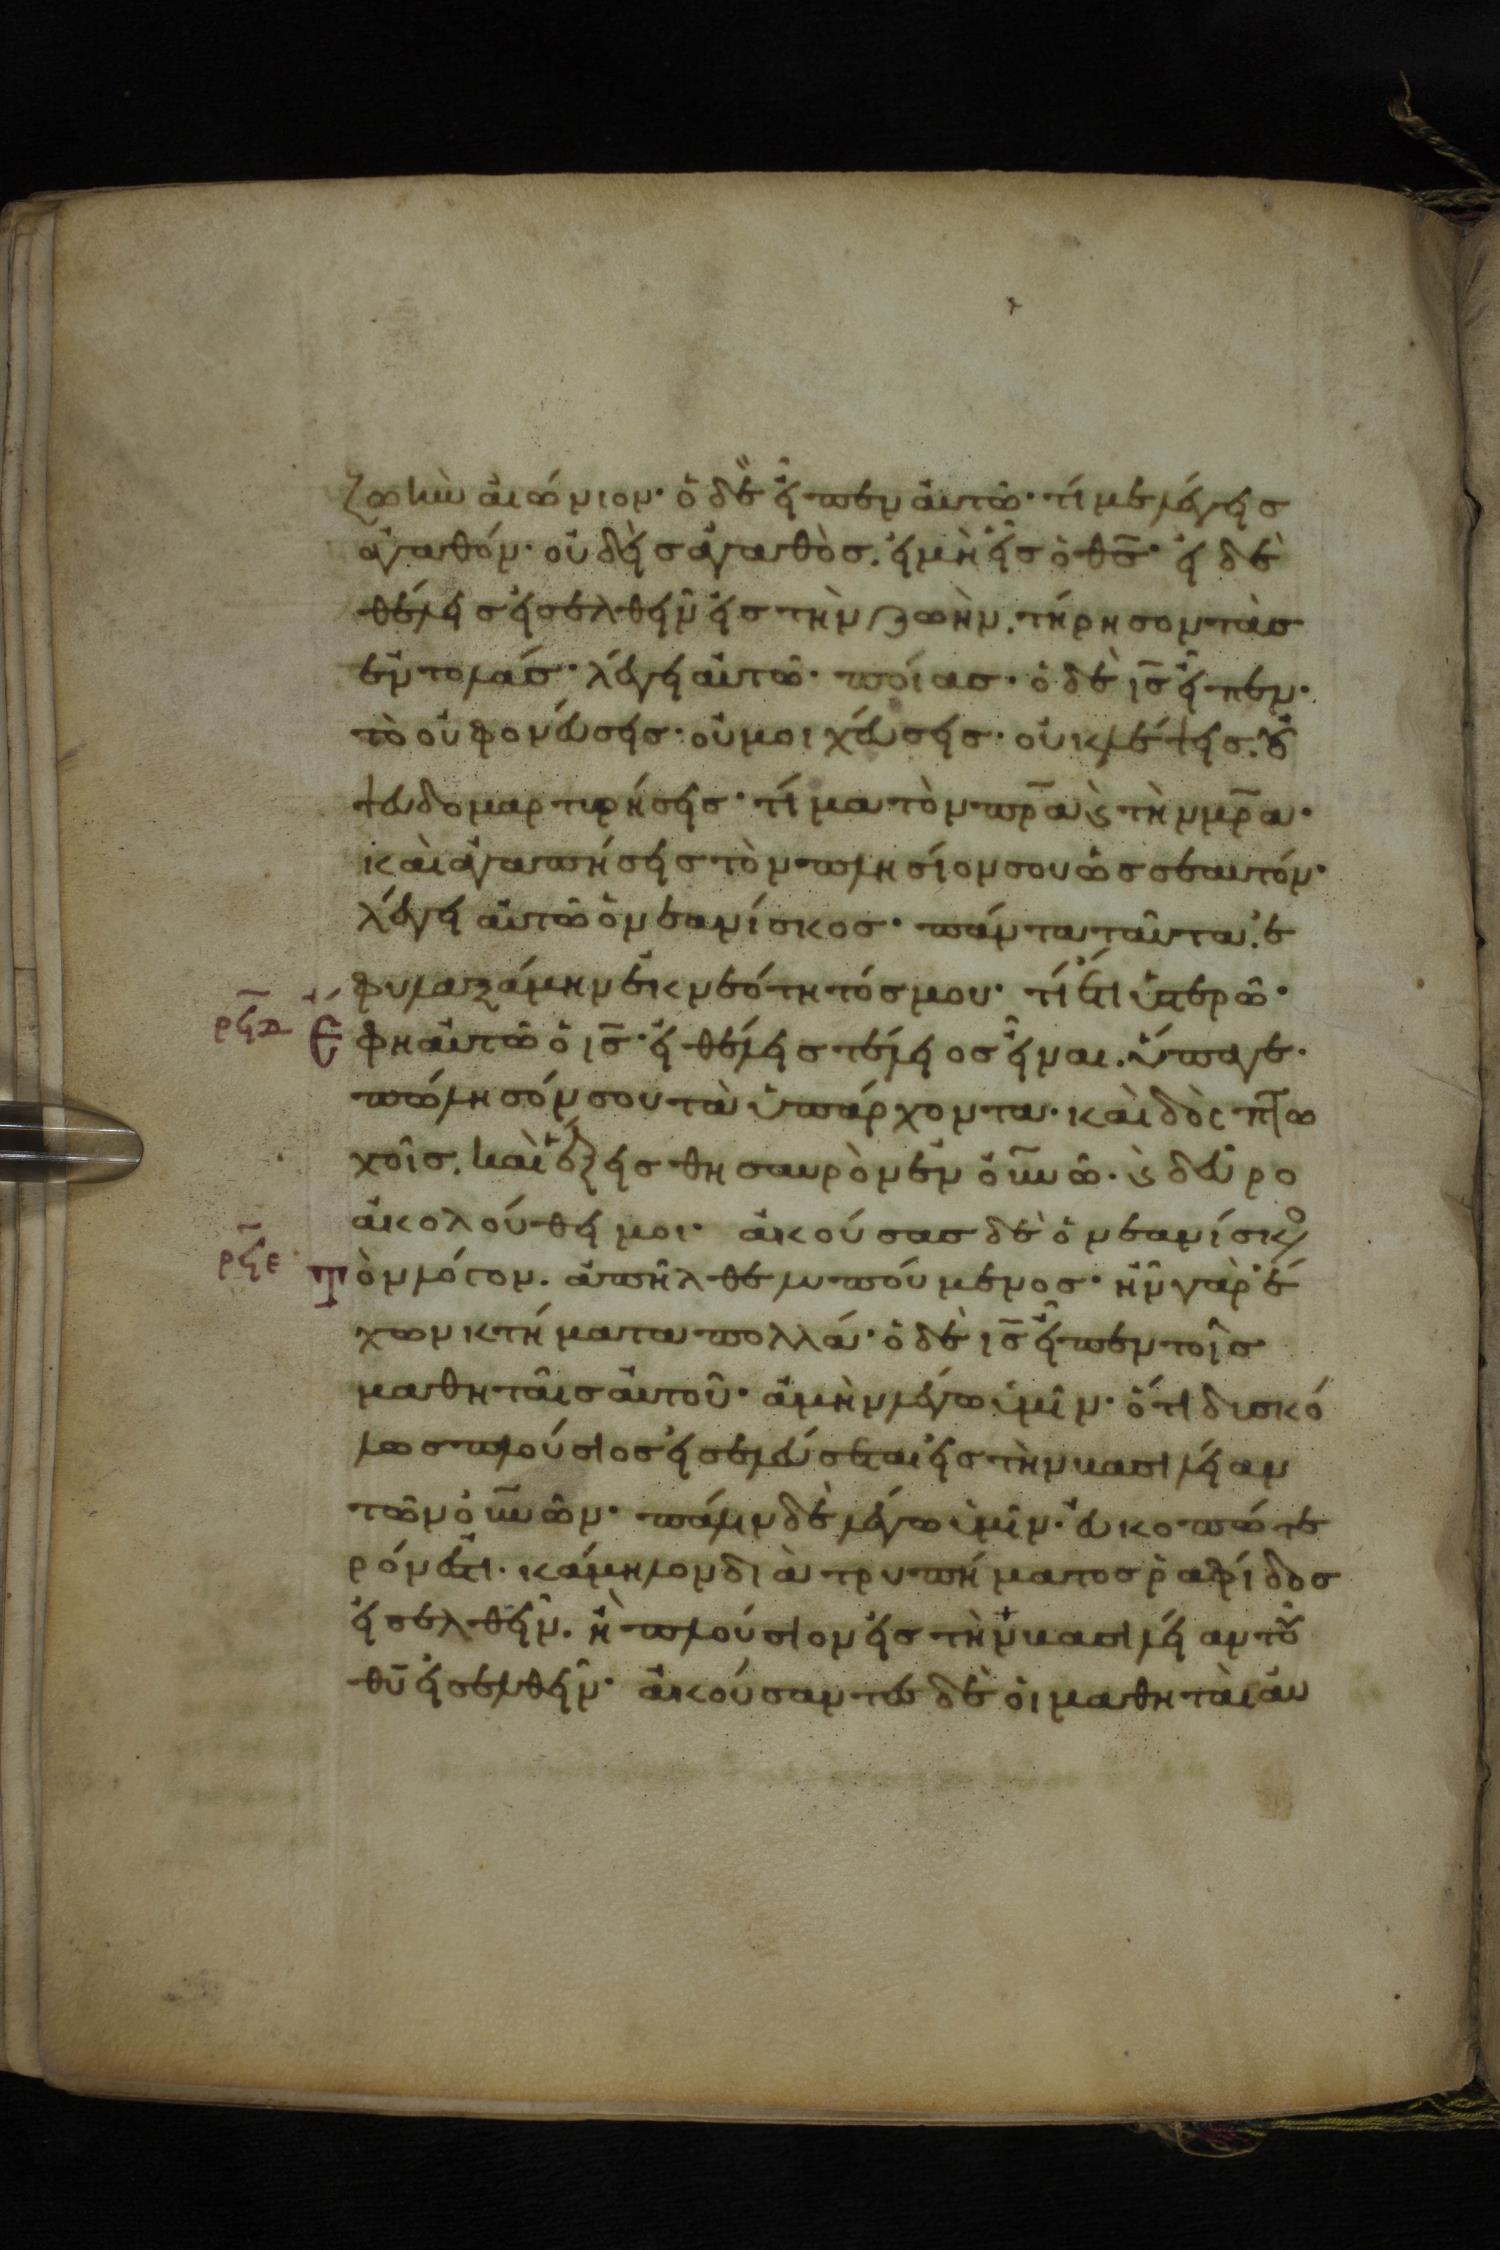 ζωὴν αἰώνιον· ὁ δὲ εἶπεν αὐτῶ· τί με λέγεις
ἀγαθόν· οὐδεὶς ἀγαθὸς. εἰ μὴ εἷς ὁ θ̅ς̅· εἰ δὲ
θέλεις εἰσελθεῖν εἰς τὴν ζωὴν. τήρησον τὰς
ἐντολάς· λέγει αὐτῶ· ποίας· ὁ δὲ ι̅ς̅ εἶπεν·
τὸ οὐ φονεύσεις· οὐ μοιχεύσεις· οὐ κλέψεις. οὐ
ψευδομαρτυρήσεις· τίμα τὸν π̅ρ̅α̅ ϗ τὴν μ̅ρ̅α̅·
καὶ ἀγαπήσεις τὸν πλησίον σου ὡς σεαυτόν·
λέγει αὐτῶ ὁ νεανίσκος· πάντα ταῦτα ἐ
φυλαξάμην ἐκ νεότητός μου· τί ἔτι ὑστερῶ·
ρ̅ϟ̅δ̅ Ἔφη αὐτῶ ὁ ι̅ς̅· εἰ θέλεις τέλειος εἶναι. ὕπαγε·
πώλησόν σου τὰ ὑπάρχοντα· καὶ δὸς πτω
χοῖς. καὶ ἕξεις θησαυρὸν ἐν ο̅υ̅ν̅ῶ· ϗ δεῦρο
ἀκολούθει μοι· ἀκούσας δὲ ὁ νεανίσκος
ρ̅ϟ̅ε̅ Τὸν λόγον. ἀπῆλθε λυπούμενος· ἦν γὰρ ἔ
χων κτήματα πολλά· ὁ δὲ ι̅ς̅ εἶπεν τοῖς
μαθηταῖς αὐτοῦ· ἀμὴν λέγω ὑμῖν· ὅτι δυσκό
λως πλούσιος εἰσελεύσεται εἰς τὴν βασιλείαν
τῶν ο̅υ̅ν̅ῶν· πάλιν δὲ λέγω ὑμῖν· εὐκοπώτε
ρόν ἐστι. κάμηλον διὰ τρυπήματος ῥαφίδος
εἰσελθεῖν. ἢ πλούσιον εἰς τὴν βασιλείαν τοῦ
θ̅υ̅ εἰσελθεῖν· ἀκούσαντες δὲ οἱ μαθηταὶ αὐ